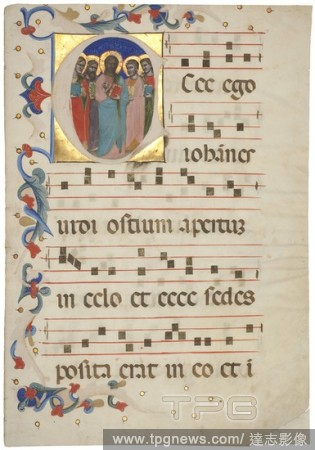 Cce ego
iohānes
uidi ostium apertuꝫ
in celo et ecce sedes
posita erat in eo et i
TPG
www.tpgnews.com/ 達志影像